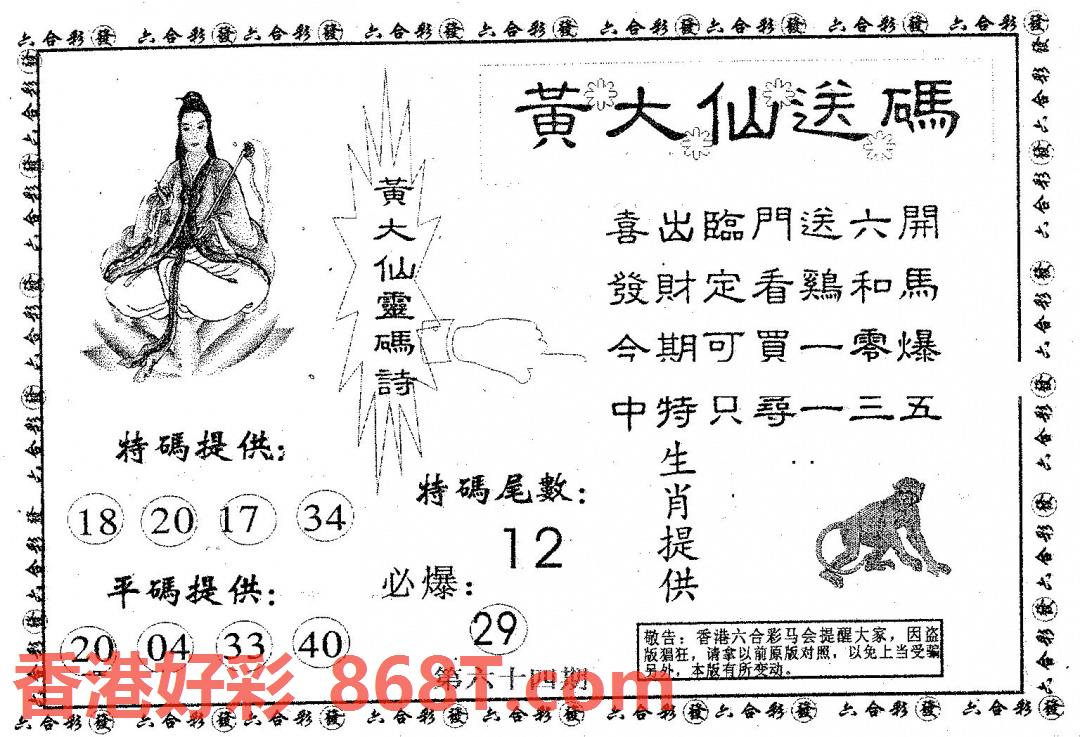 六合彩發 六合彩發 六合彩發 六合彩發 六合彩發 六合彩發 六合彩發 六合彩發 六合彩發
黃大仙送碼
黃大仙靈碼詩
喜出臨門送六開
發財定看鷄和馬
今期可買一零爆
中特只尋一三五
特碼提供：
18 20 17 34
平碼提供：
20 04 33 40
特碼尾數：
12
必爆：
29
第六十四期
生肖提供
敬告：香港六合彩马会提醒大家，因盗
版猖狂，请拿以前原版对照，以免上当受骗
另外，本版有所变动。
香港好彩 868T.com
六合彩發 六合彩發 六合彩發 六合彩發 六合彩發 六合彩發 六合彩發 六合彩發 六合彩發